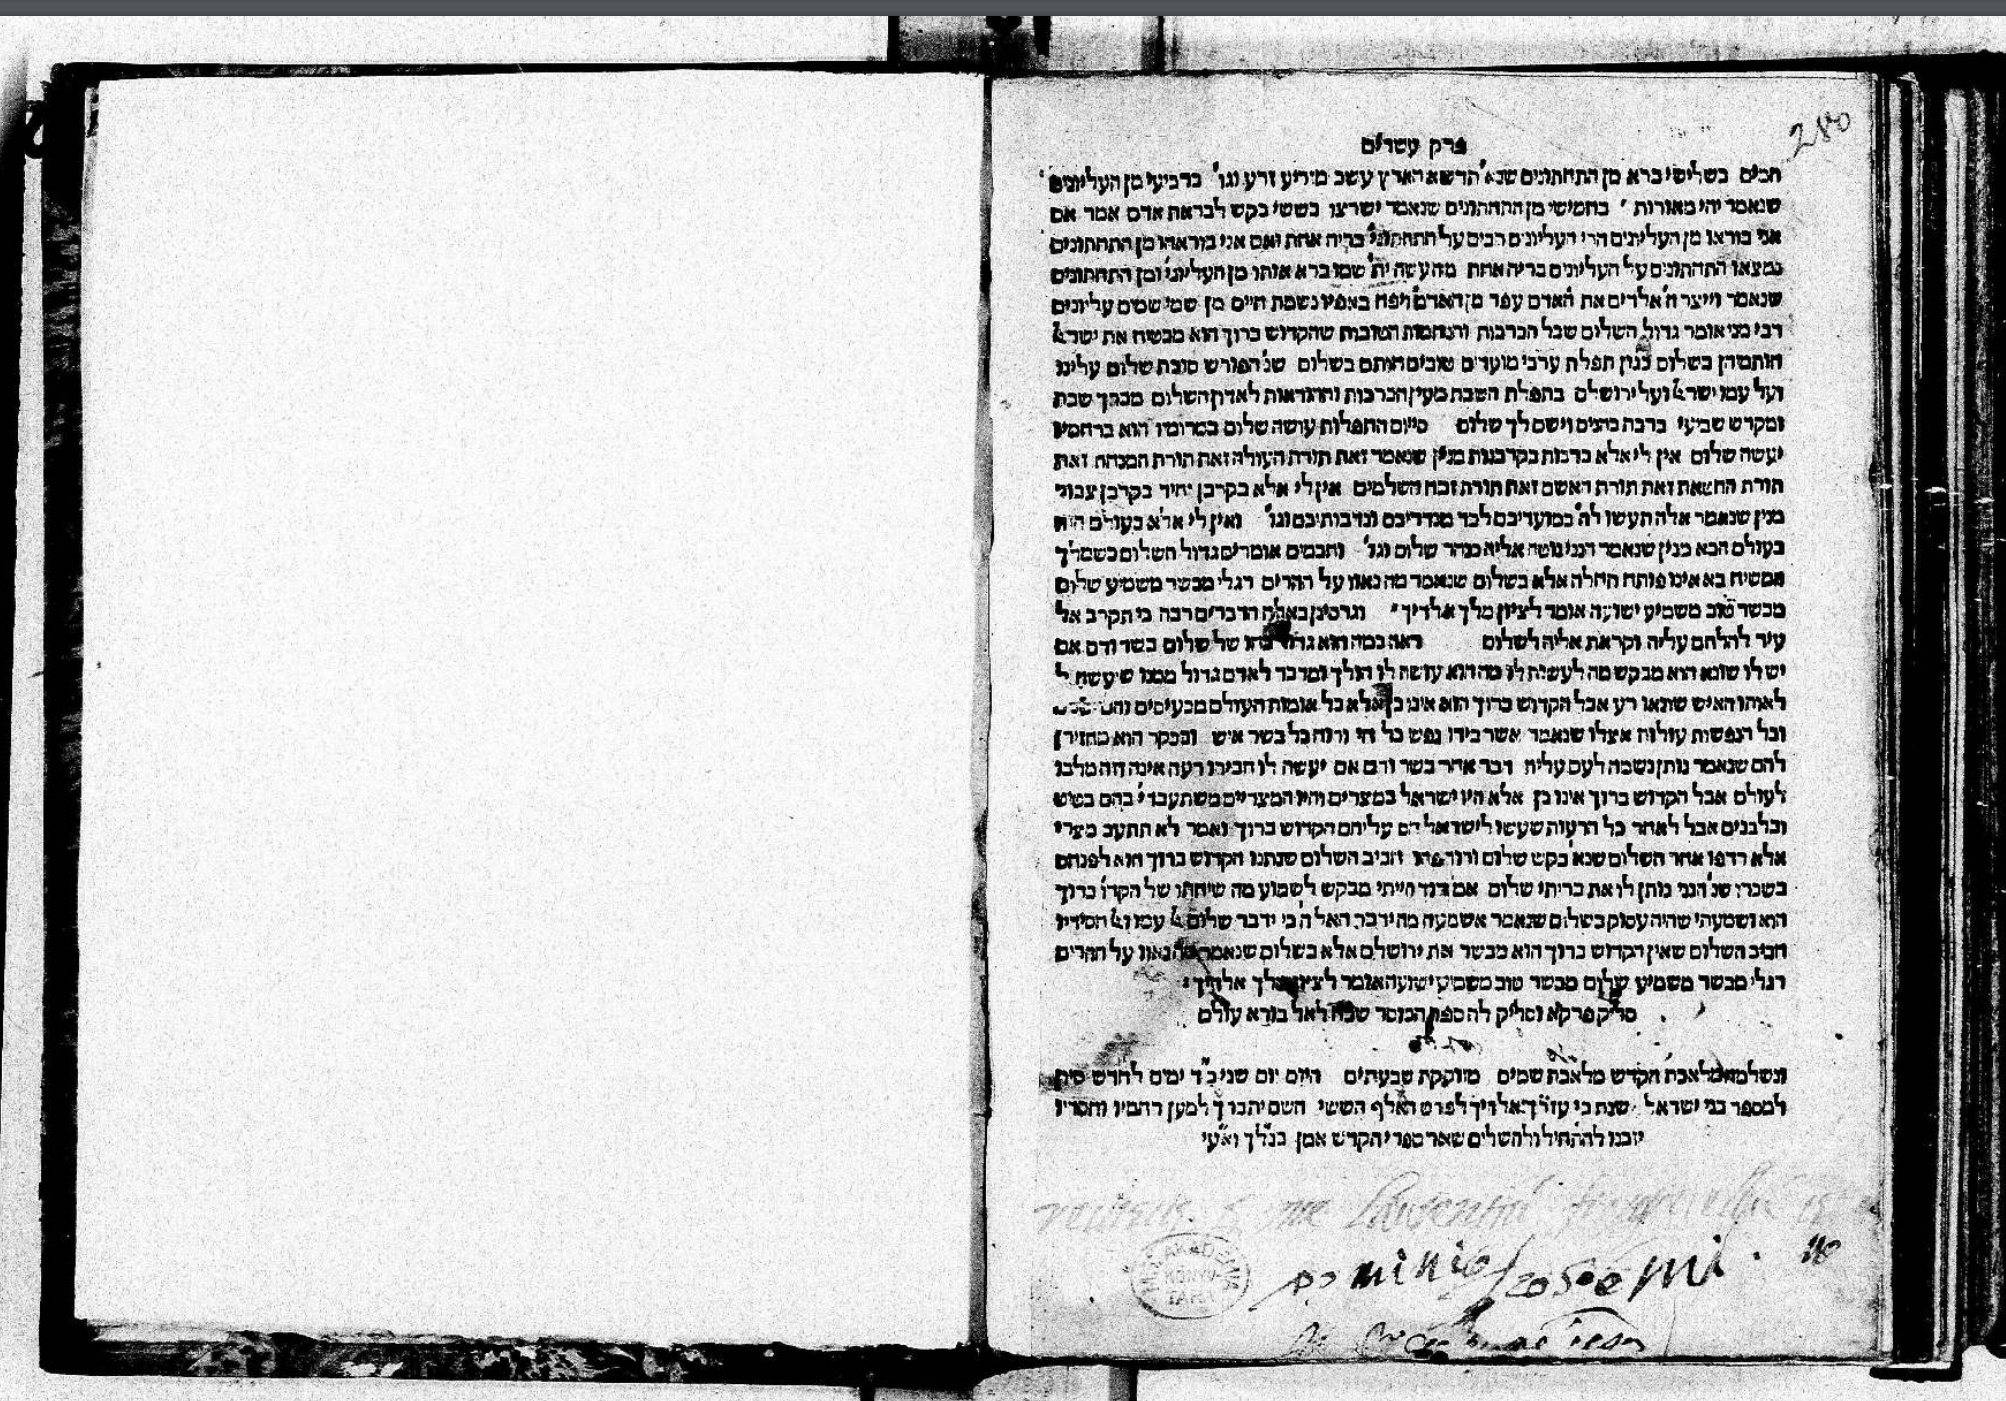 280
פרק עשרים
חכמים בשלישי ברא מן התחתונים שנא' תדשא הארץ עשב מזריע זרע וגו' ברביעי מן העליונים
שנאמר יהי מאורות ' בחמישי מן התחתונים שנאמר ישרצו בששי בקש לבראת אדם אמר אם
אני בוראו מן העליונים הרי העליונים רבים על התחתוני' בריה אחת ואם אני בוראהו מן התחתונים
נמצאו התחתונים על העליונים בריה אחת מה עשה ית' שמו ברא אותו מן העליוני' ומן התחתונים
שנאמר וייצר ה' אלדים את האדם עפר מן האדמ' ויפח באפיו נשמת חיים מן שמי שמים עליונים
רבי מני אומר גדול השלום שכל הברכות והנחמות הטובות שהקדוש ברוך הוא מבטיח את ישראל
חותמהן בשלום כגון תפלת ערבי מועדים טובים חותם בשלום שנ' הפורש סוכת שלום עלינו
ועל עמו ישראל ועל ירושלם בתפלת השבת מעין הברכות וההודאות לאדון השלום מברך שבת
ומקדש שביעי ברכת כהנים וישם לך שלום סיום התפלות עושה שלום במרומיו הוא ברחמיו
יעשה שלום אין לי אלא ברכות בקרבנות מנין שנאמר זאת תורת העולה זאת תורת המנחה זאת
תורת החטאת זאת תורת האשם זאת תורת זבח השלמים אין לי אלא בקרבן יחיד בקרבן צבור
מנין שנאמר אלה תעשו לה' במועדיכם לבד מנדריכם ונדבותיכם וגו' ואין לי אלא בעולם הזה
בעולם הבא מנין שנאמר הנני נוטה אליה כנהר שלום וגו' וחכמים אומרים גדול השלום כשמלך
המשיח בא אינו פותח תחלה אלא בשלום שנאמר מה נאוו על ההרים רגלי מבשר משמיע שלום
מבשר טוב משמיע ישועה אומר לציון מלך אלדיך וגרסינן באלה הדברים רבה כי תקרב אל
עיר להלחם עליה וקראת אליה לשלום ראה כמה הוא גדול כחו של שלום בשר ודם אם
יש לו שונא הוא מבקש מה לעשות לו מה הוא עושה לו הולך ומדבר לאדם גדול ממנו שיעשה ל
לאותו האיש שונאו רע אבל הקדוש ברוך הוא אינו כן אלא כל אומות העולם מכעיסים
וכל הנפשות עולות אצלו שנאמר אשר בידו נפש כל חי ורוח כל בשר איש ובבקר הוא מחזירן
להם שנאמר נותן נשמה לעם עליה דבר אחר בשר ודם אם יעשה לו חבירו רעה אינה זזה מלבו
לעולם אבל הקדוש ברוך אינו כן אלא היו ישראל במצרים והיו המצריים משתעבדי' בהם בטיט
ובלבנים אבל לאחר כל הרעות שעשו לישראל חס עליהם הקדוש ברוך ואמר לא תתעב מצרי
אלא רדפו אחר השלום שנא' בקש שלום ורודפהו חביב השלום שנתנו הקדוש ברוך הוא לפנחס
בשכרו שנ' הנני נותן לו את בריתי שלום אם דוד הייתי מבקש לשמוע מה שיחתו של הקדו' ברוך
הוא ושמעתי שהיה עסוק בשלום שנאמר אשמעה מה ידבר האל ה' כי ידבר שלום אל עמו ואל חסידיו
חביב השלום שאין הקדוש ברוך הוא מבשר את ירושלם אלא בשלום שנאמר מה נאוו על ההרים
רגלי מבשר משמיע שלום מבשר טוב משמיע ישועה אומר לציון מלך אלהיך
סליק פרקא וסליק להספר המוסר שבח לאל בורא עולם
ונשלמה מלאכת הקדש מלאכת שמים מזוקקת שבעתים היום יום שני כ"ד ימים לחדש סיון
למספר בני ישראל שנת כי עזרך אלהיך לפרט האלף הששי השם יתברך למען רחמיו וחסדיו
יזכנו להתחיל ולהשלים שאר ספרי הקדש אמן בנל"ך וא"עי
AKADÉMIA
KÖNYV-
TÁRA